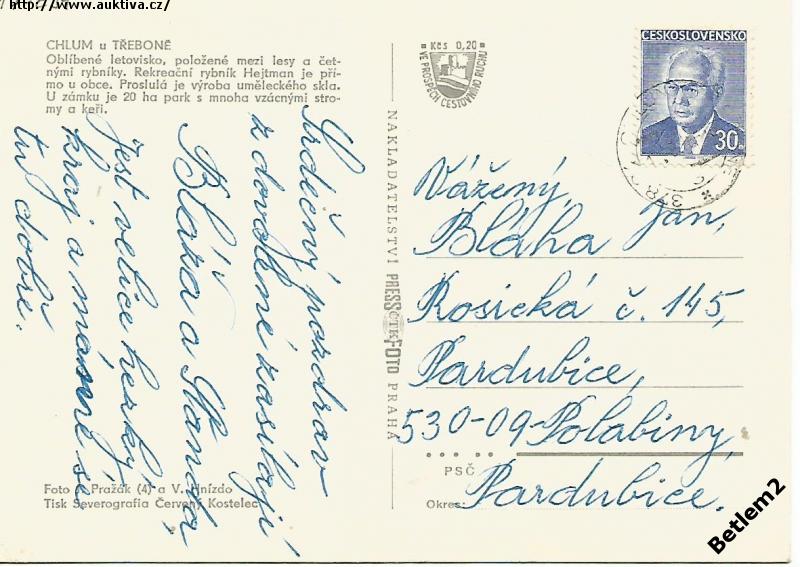 http://www.auktiva.cz/
CHLUM u TŘEBONĚ
Oblíbené letovisko, položené mezi lesy a čet-
nými rybníky. Rekreační rybník Hejtman je pří-
mo u obce. Proslulá je výroba uměleckého skla.
U zámku je 20 ha park s mnoha vzácnými stro-
my a keři.
Srdečný pozdrav
z dovolené zasílají
Bláža a Standa,
Jest velice hezký
kraj a máme se
tu dobře.
Foto J. Pražák (4) a V. Hnízdo
Tisk Severografia Červený Kostelec
NAKLADATELSTVÍ PRESSFOTO PRAHA
ČTK
Kčs 0,20
VE PROSPĚCH CESTOVNÍHO RUCHU
ČESKOSLOVENSKO
30
Vážený,
Jan,
Bláha
Rosická č. 145,
Pardubice,
530-09-Polabiny
PSČ
Okres: Pardubice.
Betlem2